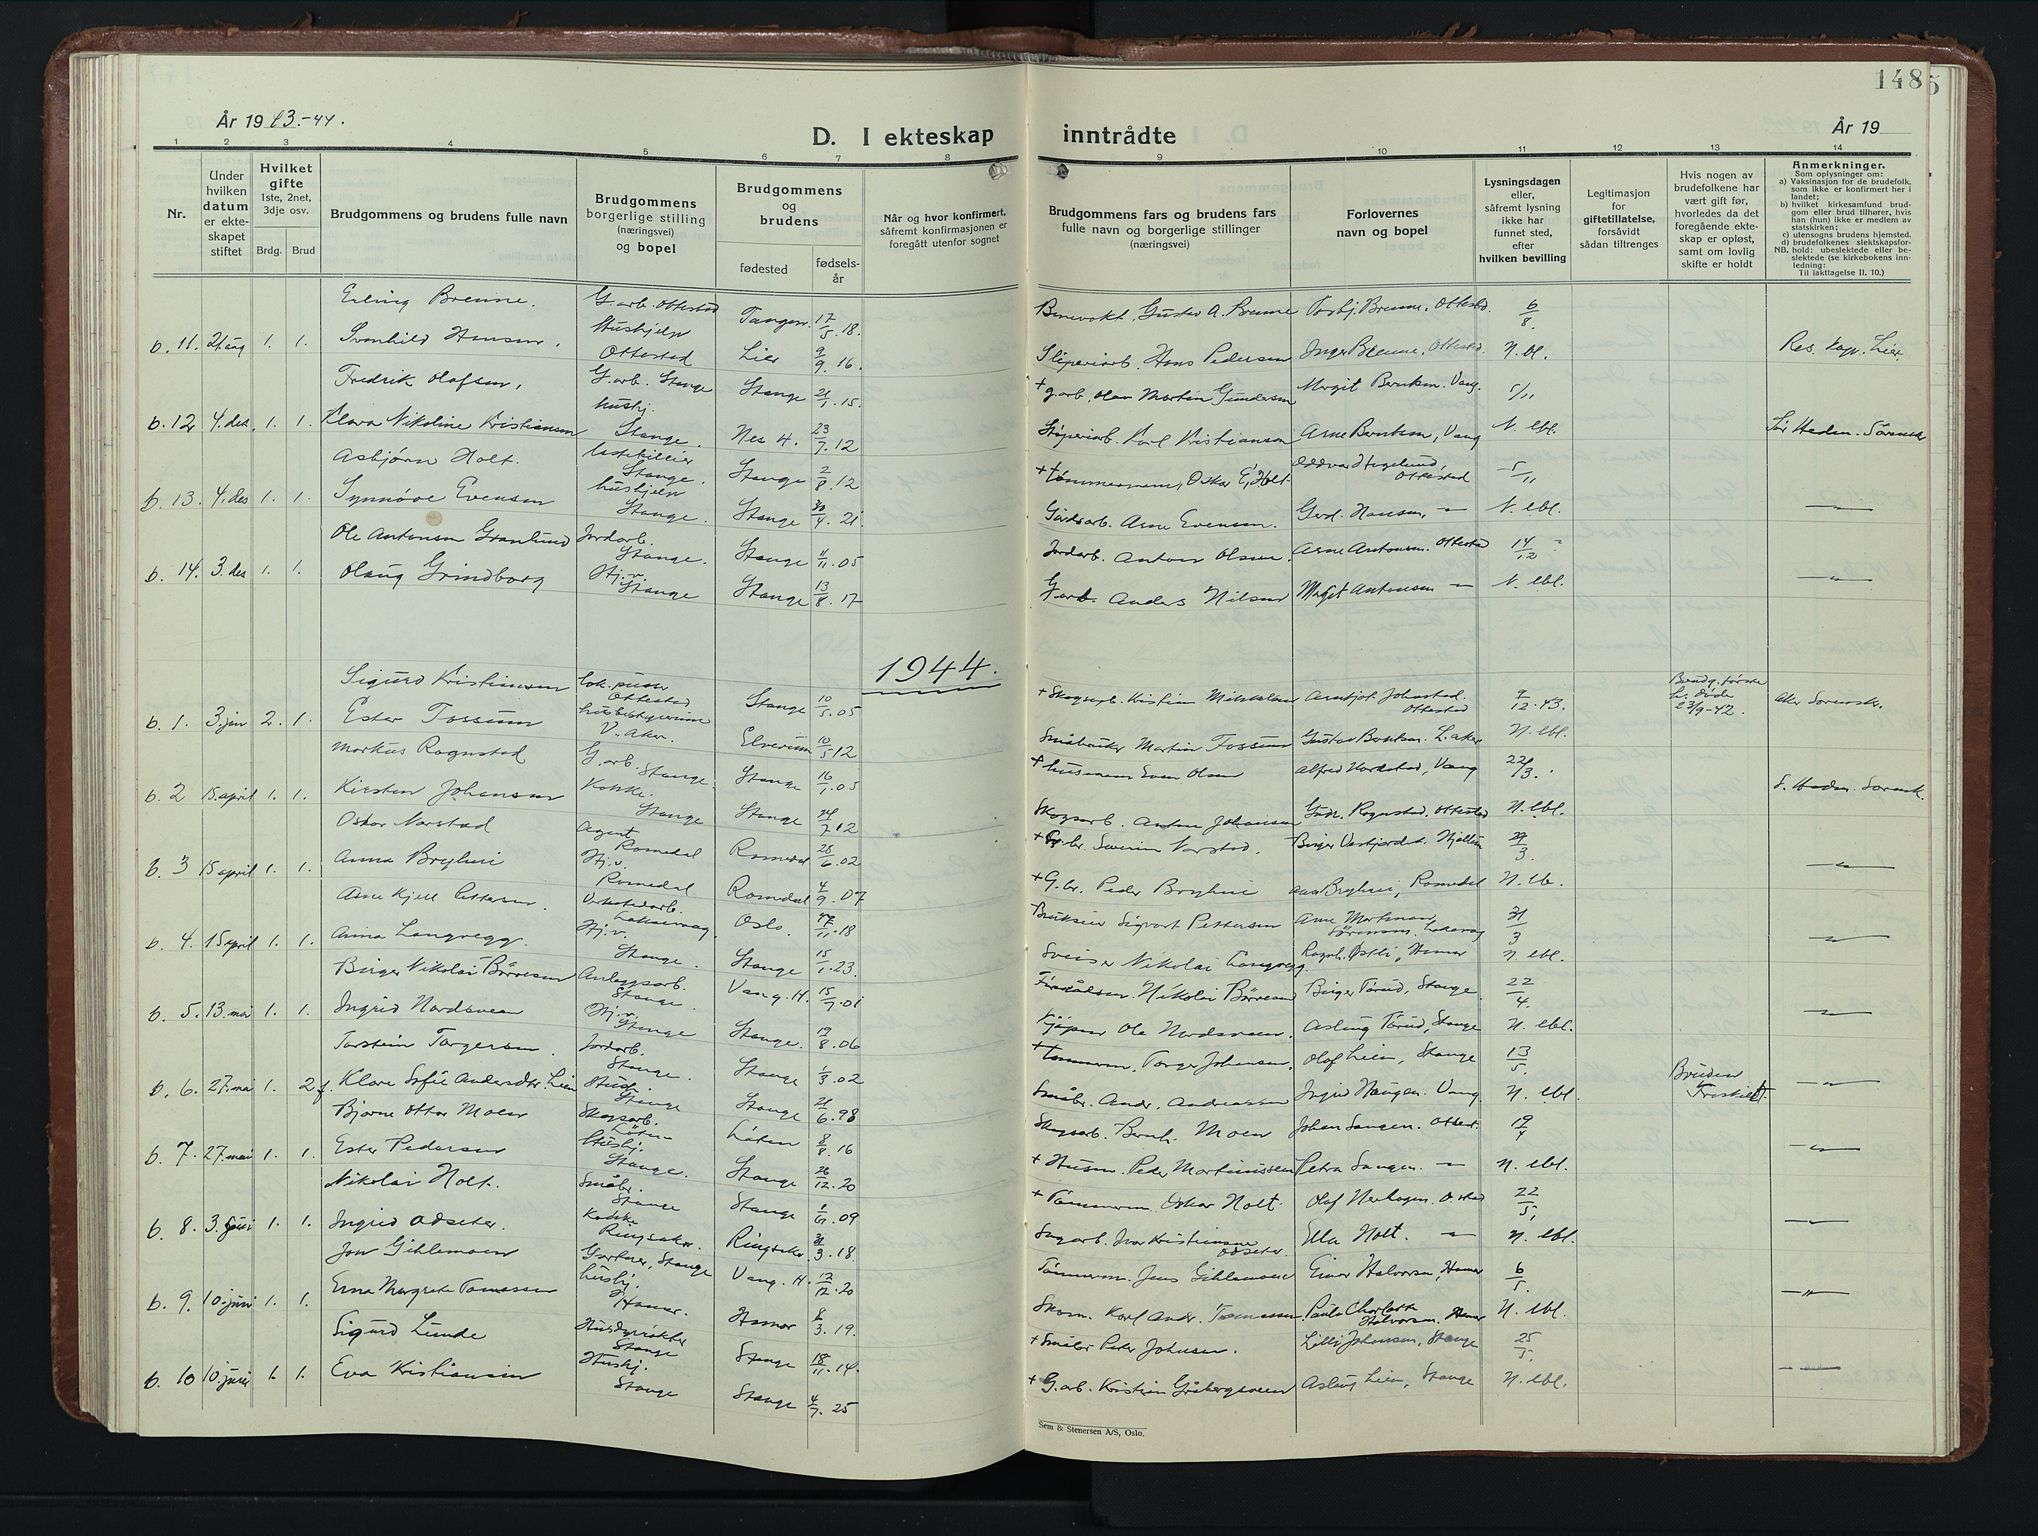 148
5
År 19 43.-44.
D. I ekteskap inntrådte
År 19
1 2 3 4 5 6 7 8 9 10 11 12 13 14
Nr.
Under hvilken datum er ekteskapet stiftet
Hvilket gifte 1ste, 2net, 3dje osv.
Brdg. Brud
Brudgommens og brudens fulle navn
Brudgommens borgerlige stilling (næringsvei) og bopel
Brudgommens og brudens
fødested
fødselsår
Når og hvor konfirmert, såfremt konfirmasjonen er foregått utenfor sognet
Brudgommens fars og brudens fars fulle navn og borgerlige stillinger (næringsvei)
Forlovernes navn og bopel
Lysningsdagen eller, såfremt lysning ikke har funnet sted, efter hvilken bevilling
Legitimasjon for giftetillatelse, forsåvidt sådan tiltrenges
Hvis nogen av brudefolkene har vært gift før, hvorledes da det foregående ekteskap er opløst, samt om lovlig skifte er holdt
Anmerkninger.
Som oplysninger om:
a) Vaksinasjon for de brudefolk, som ikke er konfirmert her i landet;
b) hvilket kirkesamfund brudgom eller brud tilhører, hvis han (hun) ikke er medlem av statskirken;
c) utensogns brudens hjemsted.
d) brudefolkenes slektskapsforhold: ubeslektede eller beslektede (se kirkebokens innledning:
NB.
Til iakttagelse II. 10.)
Erling Brenne. G.arb. Ottestad Tangen 17/5.18. Gustav A. Brenne Torbj. Brenne, Ottestad. 6/8
b. 11. 21 aug 1. 1. Svanhild Hansen. Hushjelp Ottestad Lier 9/9.16. Sliperiarb. Hans Pedersen Inger Brenne, Ottestad. N. bl. Res. kap. Lier
Fredrik Olafsen, G.arb. Stange Stange 21/1.15. + g.arb. Olav Martin Gundersen Margit Berntsen. Vang. 5/11
b. 12 4. des. 1. 1. Klara Nikoline Kristiansen hushj. Stange. Nes H. 23/7.12 Karl Kristiansen Arne Berntsen, Vang N. lbl.
Asbjørn Holt. lastebileier Stange. Stange 2/8.12 + tømmermann, Oskar E. Holt Oddvar Høgelund, Ottestad 5/11
b. 13. 4. des 1. 1. Synnøve Evensen hushjelp Stange. Stange 30/4.21 Gårdsarb. Arne Evensen. Gerd. Hansen, — N. lbl. —"—
Ole Antonsen Granlund Jordarb. Stange. Stange 11/11.05 Jordarb. Anton Olsen Arne Antonsen. Ottestad 14/12
b. 14. 3. des 1. 1. Olaug Grindborg Hj.v. Stange Stange 13/8.17 G.arb. Anders Nilsen Margit Antonsen — N. lbl. —"—
1944.
Sigurd Kristiansen Lok.pusser Ottestad Stange 10/5.05 + Skogsarb. Kristian Mikkelsen Arntfot Johnstad. Ottestad 9/12.43. Brudg. første h. døde 23/9-42. Aker Sorenskr.
b. 1. 3. jan 2. 1. Ester Fossum husbestyrerinne V. Aker. Elverum 10/5 12 Småbruker Martin Fossum Gustav Berntsen. V. Aker N. lbl.
Markus Rognstad G.arb. Stange. Stange 16/1.05 + husmann Even Olsen Alfred Nordstad, Vang 22/3.
b. 2 15. april 1. 1. Kirsten Johansen Kokke. Stange Stange 24/7 12 Skogsarb. Anton Johansen Gudr. Rognstad, Ottestad N. lbl. S. Hedm. Sorensk.
Oskar Norstad Agent Romedal Romedal 28/6.02 + G.br. Severin Norstad. Birger Vestfjordet. Hjellum 27/3.
b. 3 15 april 1. 1. Anna Bryhni Hj.v. Romedal Romedal 4/9.07 + G.br. Peder Bryhni Aase Bryhni, Romedal N. lb. —"—
Arne Kjell Pettersen. Verkstedarb. Laksevaag. Oslo. 27/11.18 Sigvart Pettersen Arne Martmann Sørensen, Laksevåg 31/3
b. 4. 15 april 1. 1. Anna Langvegg. Hj.v. Stange. Stange 15/1.23. Sveiser Nikolai Langvegg Ragnh. Østli, Hamar N. lbl. —"—
Birger Nikolai Børresen Anleggsarb. Stange Vang. H. 15/7.01 Nikolai Børresen Birger Tørud, Stange. 22/4.
b. 5. 13. mai 1. 1. Ingrid Nordsveen Hj.v. Stange Stange. 19/8.06 Kjøpm. Ole Nordsveen. Aslaug Tørud, Stange N. lbl. —"—
Torstein Torgersen. Jordarb. Stange. Stange 1/3.02 + tømmerm. Torger Johansen, Olaf Lien, Stange 13/5.
b. 6. 27. mai 1. 2 f. Klara Sofie Andersdtr. Lien Stange Stange 21/6.98 Småbr. Andr. Andreassen Ingrid Haugen. Vang N. lbl. Bruden fraskilt. —"—
Bjarne Ottar Moen Skogsarb. Løten Løten 8/8.16 Skogsarb. Bernh. Moen Johan Sangen. Ottest. 19/4
b. 7. 27. mai 1. 1. Ester Pedersen Hushj. Stange. Stange 26/12.20 + Husm. Peder Martinussen Petra Sangen — N. lbl. —"—
Nikolai Holt. Småbr. Stange Stange 1/6.09 + Tømmerm. Oskar Holt. Olaf Nerhagen. O.stad 22/5.
b. 8. 3. juni 1. 1. Ingrid Odseter. Kokke Ringsaker. Ringsaker 31/3.18. Sagarb. Ivar Kristiansen Odseter. Ella Holt. — N. lbl. —"—
Jon Gihlemoen Gartner, Stange Vang. H. 12/12.20 Tømmerm. Jens Gihlemoen Einar Halvorsen, Hamar 6/5.
b. 9. 10. juni 1. 1. Erna Margrete Tomassen hushj. Hamar. Hamar 8/3.19. Skom. Karl Andr. Tomassen Paula Charlotte Halvorsen. Hamar N. lbl. —"—
Sigurd Lunde Husdyrrøkter Stange Stange 18/11.14. + Småbr. Peter Johnsen. Lilly Johansen, Stange 25/5.
b. 10 10. juni 1. 1. Eva Kristiansen Hushj. Stange Stange 4/7.25 + G.arb. Kristian Gråbergsveen Aslaug Lien, Stange N. lbl. —"—
Sem & Stenersen A/S, Oslo.